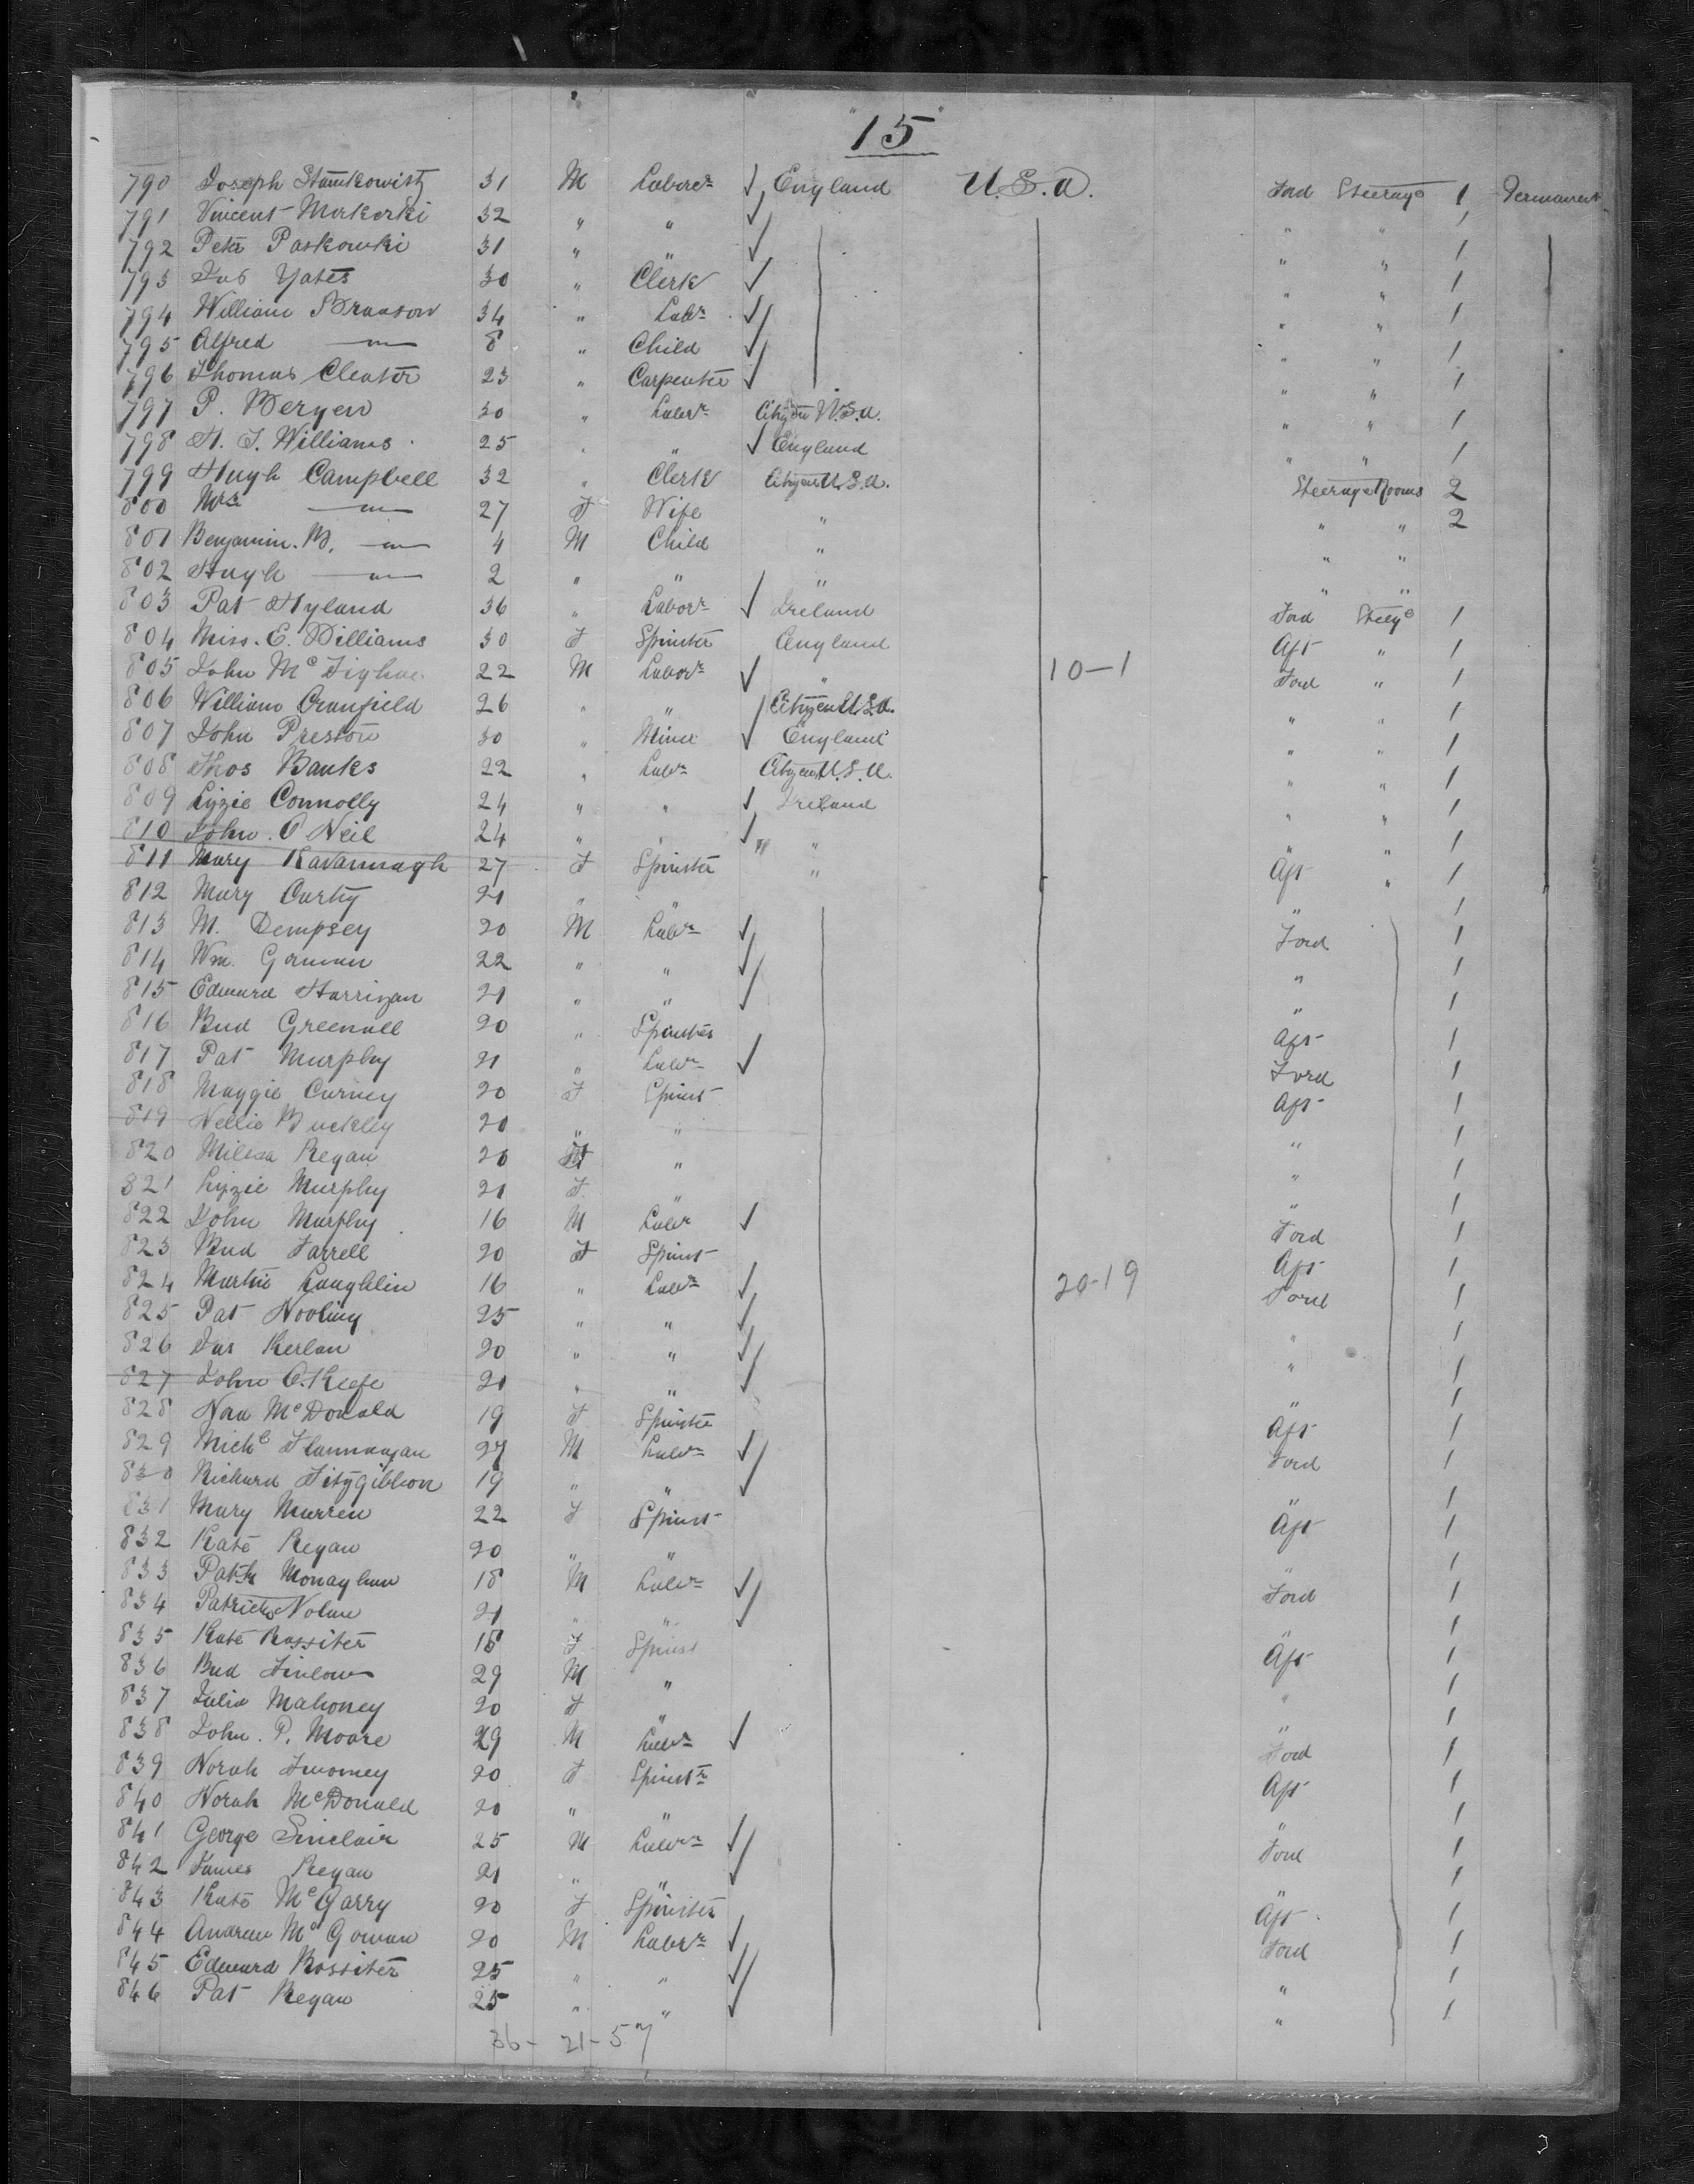 "15"
790 Joseph Stankowisty 31 M Laborer England U.S.A. Ford Steerage 1 Permanent
791 Vincent Morkorki 32 " " " " 1
792 Peter Paskowki 31 " " " " 1
793 Jas Yates 30 " Clerk " " 1
794 William Branson 34 " Labr " " 1
795 Alfred — 8 " Child " " 1
796 Thomas Cleator 23 " Carpenter " " 1
797 P. Bergen 30 " Labr Citizen U.S.A. " " 1
798 H. J. Williams 25 " " England " " 1
799 Hugh Campbell 32 " Clerk Citizen U.S.A. Steerage Rooms 2
800 Mrs — 27 F Wife " " " 2
801 Benjamin. B. — 4 M Child " " "
802 Hugh — 2 " " " " "
803 Pat Hyland 36 " Labor Ireland Ford Steeg 1
804 Miss. E. Williams 30 F Spinster England Aft " 1
805 John McTighue 22 M Labor " 10-1 Ford " 1
806 William Cranfield 26 " " Citizen U.S.A. " " 1
807 John Preston 30 " Miner England " " 1
808 Thos Banks 22 " Labr Citizen U.S.A. " " 1
809 Lizzie Connolly 24 " " Ireland " " 1
810 John. O Neil 24 " " " " " 1
811 Mary Kavannagh 27 F Spinster " Aft " 1
812 Mary Curty 21 " " " 1
813 M. Dempsey 20 M Labr Ford 1
814 Wm. Gorman 22 " " " 1
815 Edward Harrigan 21 " " " 1
816 Brid Greenall 20 " Spinster Aft 1
817 Pat Murphy 21 " Labr Ford 1
818 Maggie Curney 20 F Spinst Aft 1
819 Nellie Buckley 20 " " " 1
820 Milesa Regan 20 " " 1
821 Lizzie Murphy 21 F " " 1
822 John Murphy 16 M Labr Ford 1
823 Brid Farrell 20 F Spinst Aft 1
824 Martin Laughlin 16 " Labr 20-19 Ford 1
825 Pat 25 " " " 1
826 Jas Kerlan 20 " " " 1
827 John O.Keefe 21 " " " 1
828 Nora McDonald 19 F Spinster Aft 1
829 Michl Flannagan 27 M Labr Ford 1
830 Richard Fitzgibbon 19 " " " 1
831 Mary Murren 22 F Spinst Aft 1
832 Kate Regan 20 " " " 1
833 Patk Monaghan 18 M Labr Ford 1
834 Patrick Nolan 21 " " " 1
835 Kate Rossiter 18 F Spinst Aft 1
836 Brid Finlow 29 M " " 1
837 Julia Mahoney 20 F " " 1
838 John. P. Moore 29 M Labr Ford 1
839 Norah Twomey 20 F Spinstr Aft 1
840 Norah McDonald 20 " " " 1
841 George Sinclair 25 M Labr Ford 1
842 James Regan 21 " " " 1
843 Kate McGarry 20 F Spinster Aft 1
844 Andrew McGowan 20 M Labr Ford 1
845 Edward Rossiter 25 " " " 1
846 Pat Regan 25 " " " 1
36- 21- 57